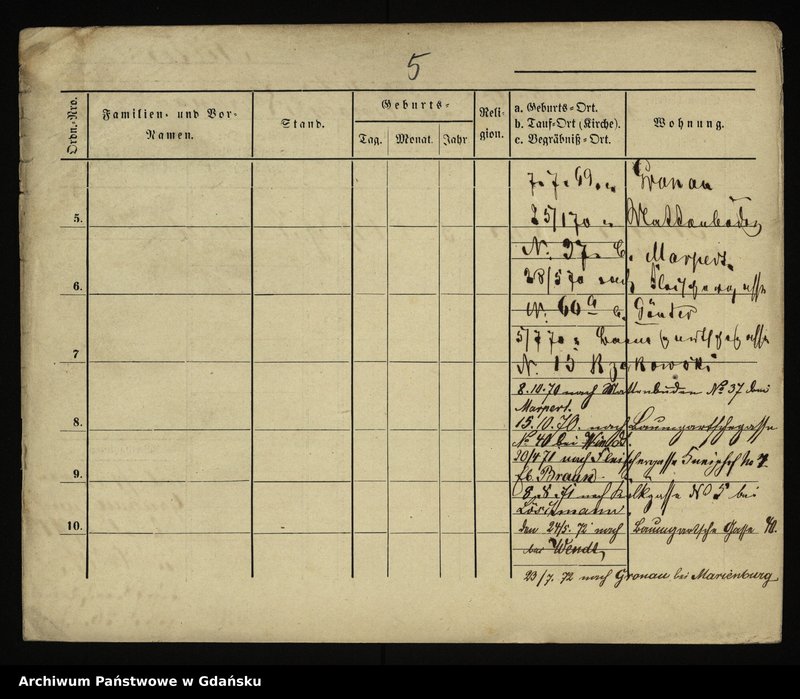 5
Ordn.-Nro.
Familien- und Vor-
Namen.
Stand.
Geburts-
Tag.
Monat.
Jahr
Reli-
gion.
a. Geburts-Ort.
b. Tauf-Ort (Kirche).
c. Begräbniß-Ort.
Wohnung.
7. 7. 69 Gronau
5.
25/1 70 Mattenbuden
No. 37. b. Marpert.
6.
28/5 70 nach Fleischergasse
No. 60a b. Günter
7
5/7 70 Baumgartschegasse
No. 15 Rzakowski
8. 10. 70 nach Mattenbuden No 37 bei
Marpert.
8.
15. 10. 70. nach Baumgartschegasse
No 40 bei
20/4 71 nach Fleischergasse No
9.
Braun
71 nach gasse No 5 bei
10.
den 24/5. 72 nach Baumgartsche Gasse 40.
bei Wendt
23/7. 72 nach Gronau bei Marienburg
Archiwum Państwowe w Gdańsku